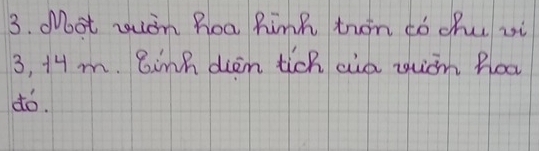 3. Một vườn hoa hình tròn có chu vi
3,14 m. Tính diện tích của vườn hoa
đó.